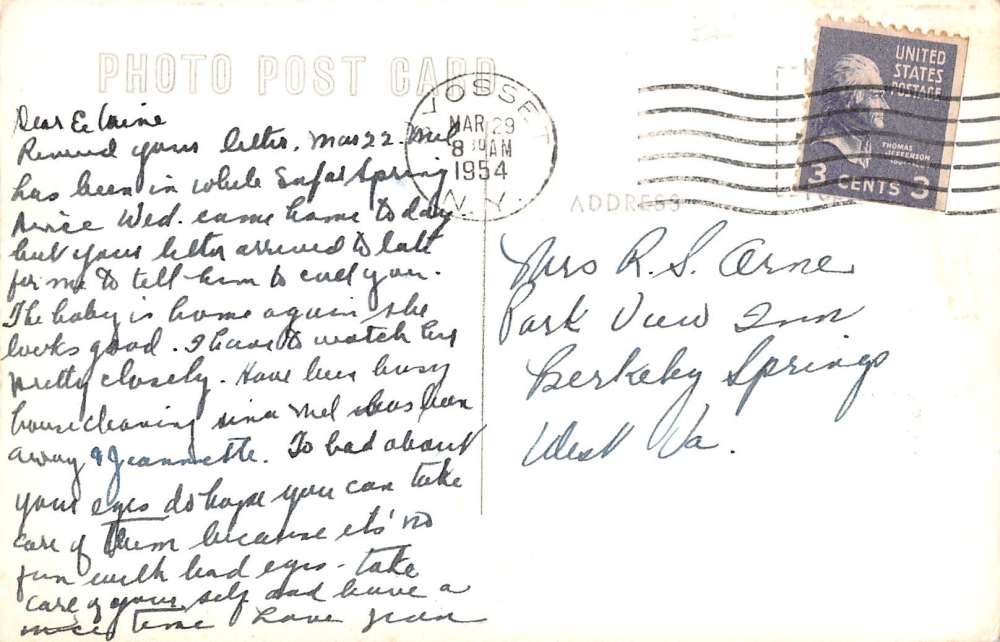 PHOTO POST CARD
Dear Elaine
Received your letter. Mar 22. Mel
has been in white Sulfat Spring
since Wed. came home today
but your letter arrived to late
for me to tell him to call you.
The baby is home again she
looks good. I have to watch her
pretty closely. Have been busy
housecleaning since Mel has been
away & Jeannette. To bad about
your eyes do hope you can take
care of them because its' no
fun with bad eyes - take
care of your self and have a
nice time Love Jean
YOSSET
N.Y.
MAR 29
8 30 AM
1954
UNITED
STATES
POSTAGE
THOMAS
JEFFERSON
3 CENTS 3
ADDRESS
Mrs R. S. Arne
Park View Inn
Berkeley Springs
West Va.